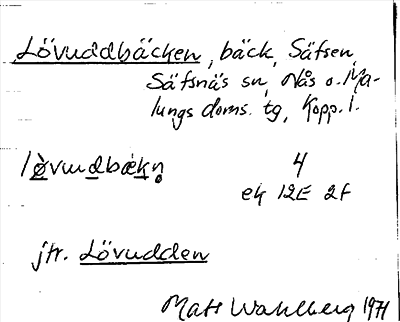 Lövuddbäcken, bäck, Säfsen,
Säfsnäs sn, Nås o. Ma-
lungs doms. tg, Kopp. l.
lø̀vudbækn̥ 4
ek 12E 2f
jfr. Lövudden
Mats Wahlberg 1971